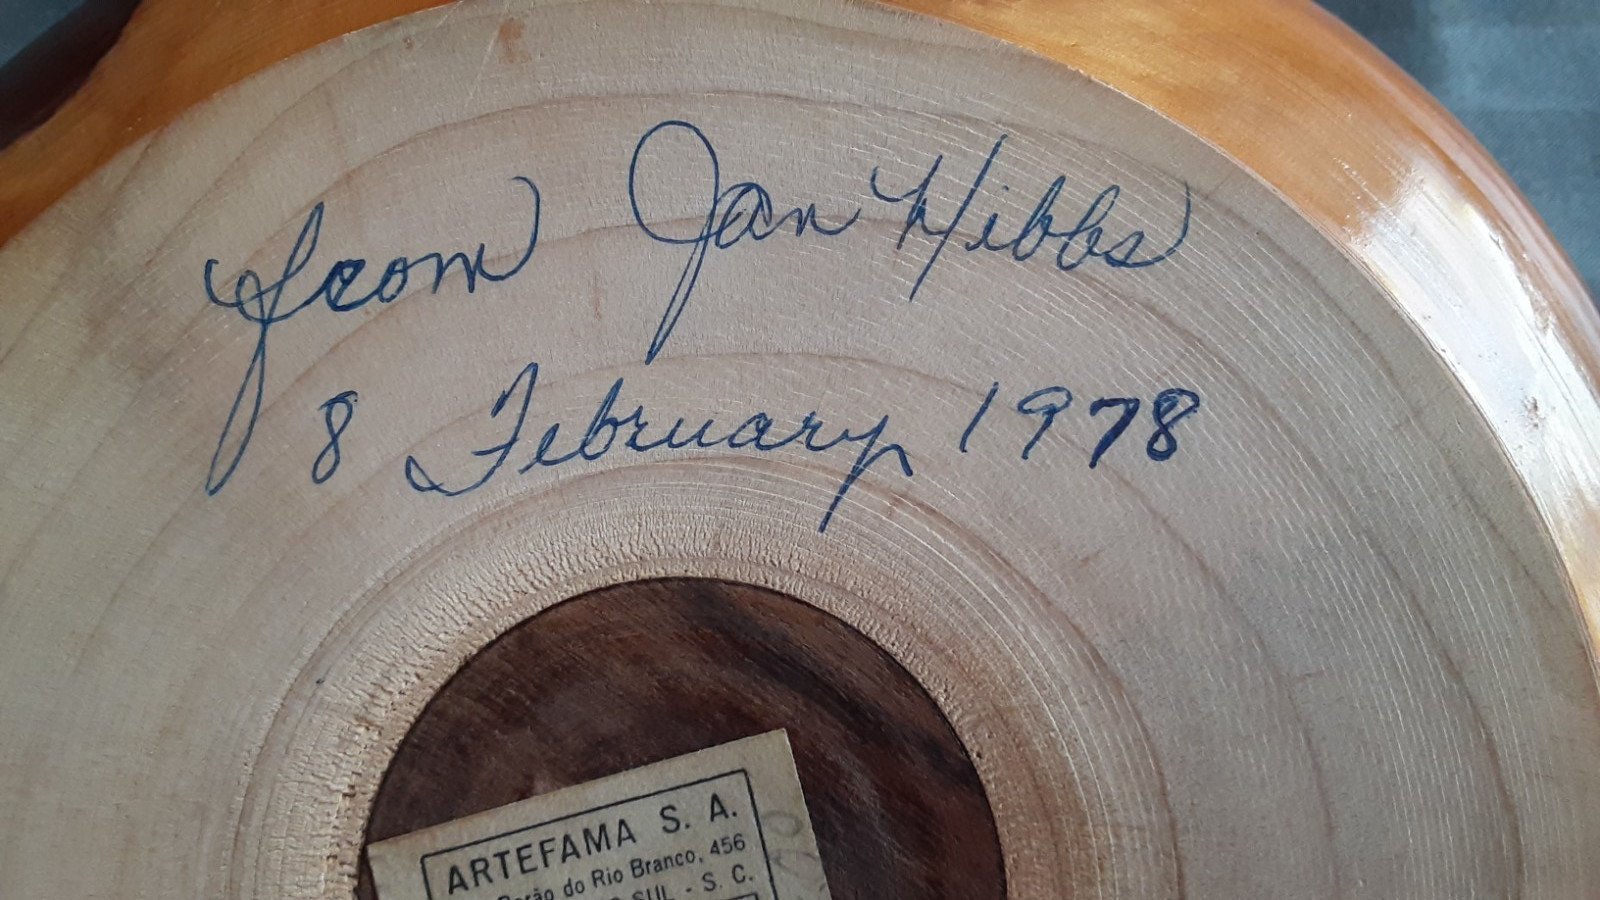 from Jan Hibbs
8 February 1978
ARTEFAMA S. A.
Barão do Rio Branco, 456
SUL - S. C.